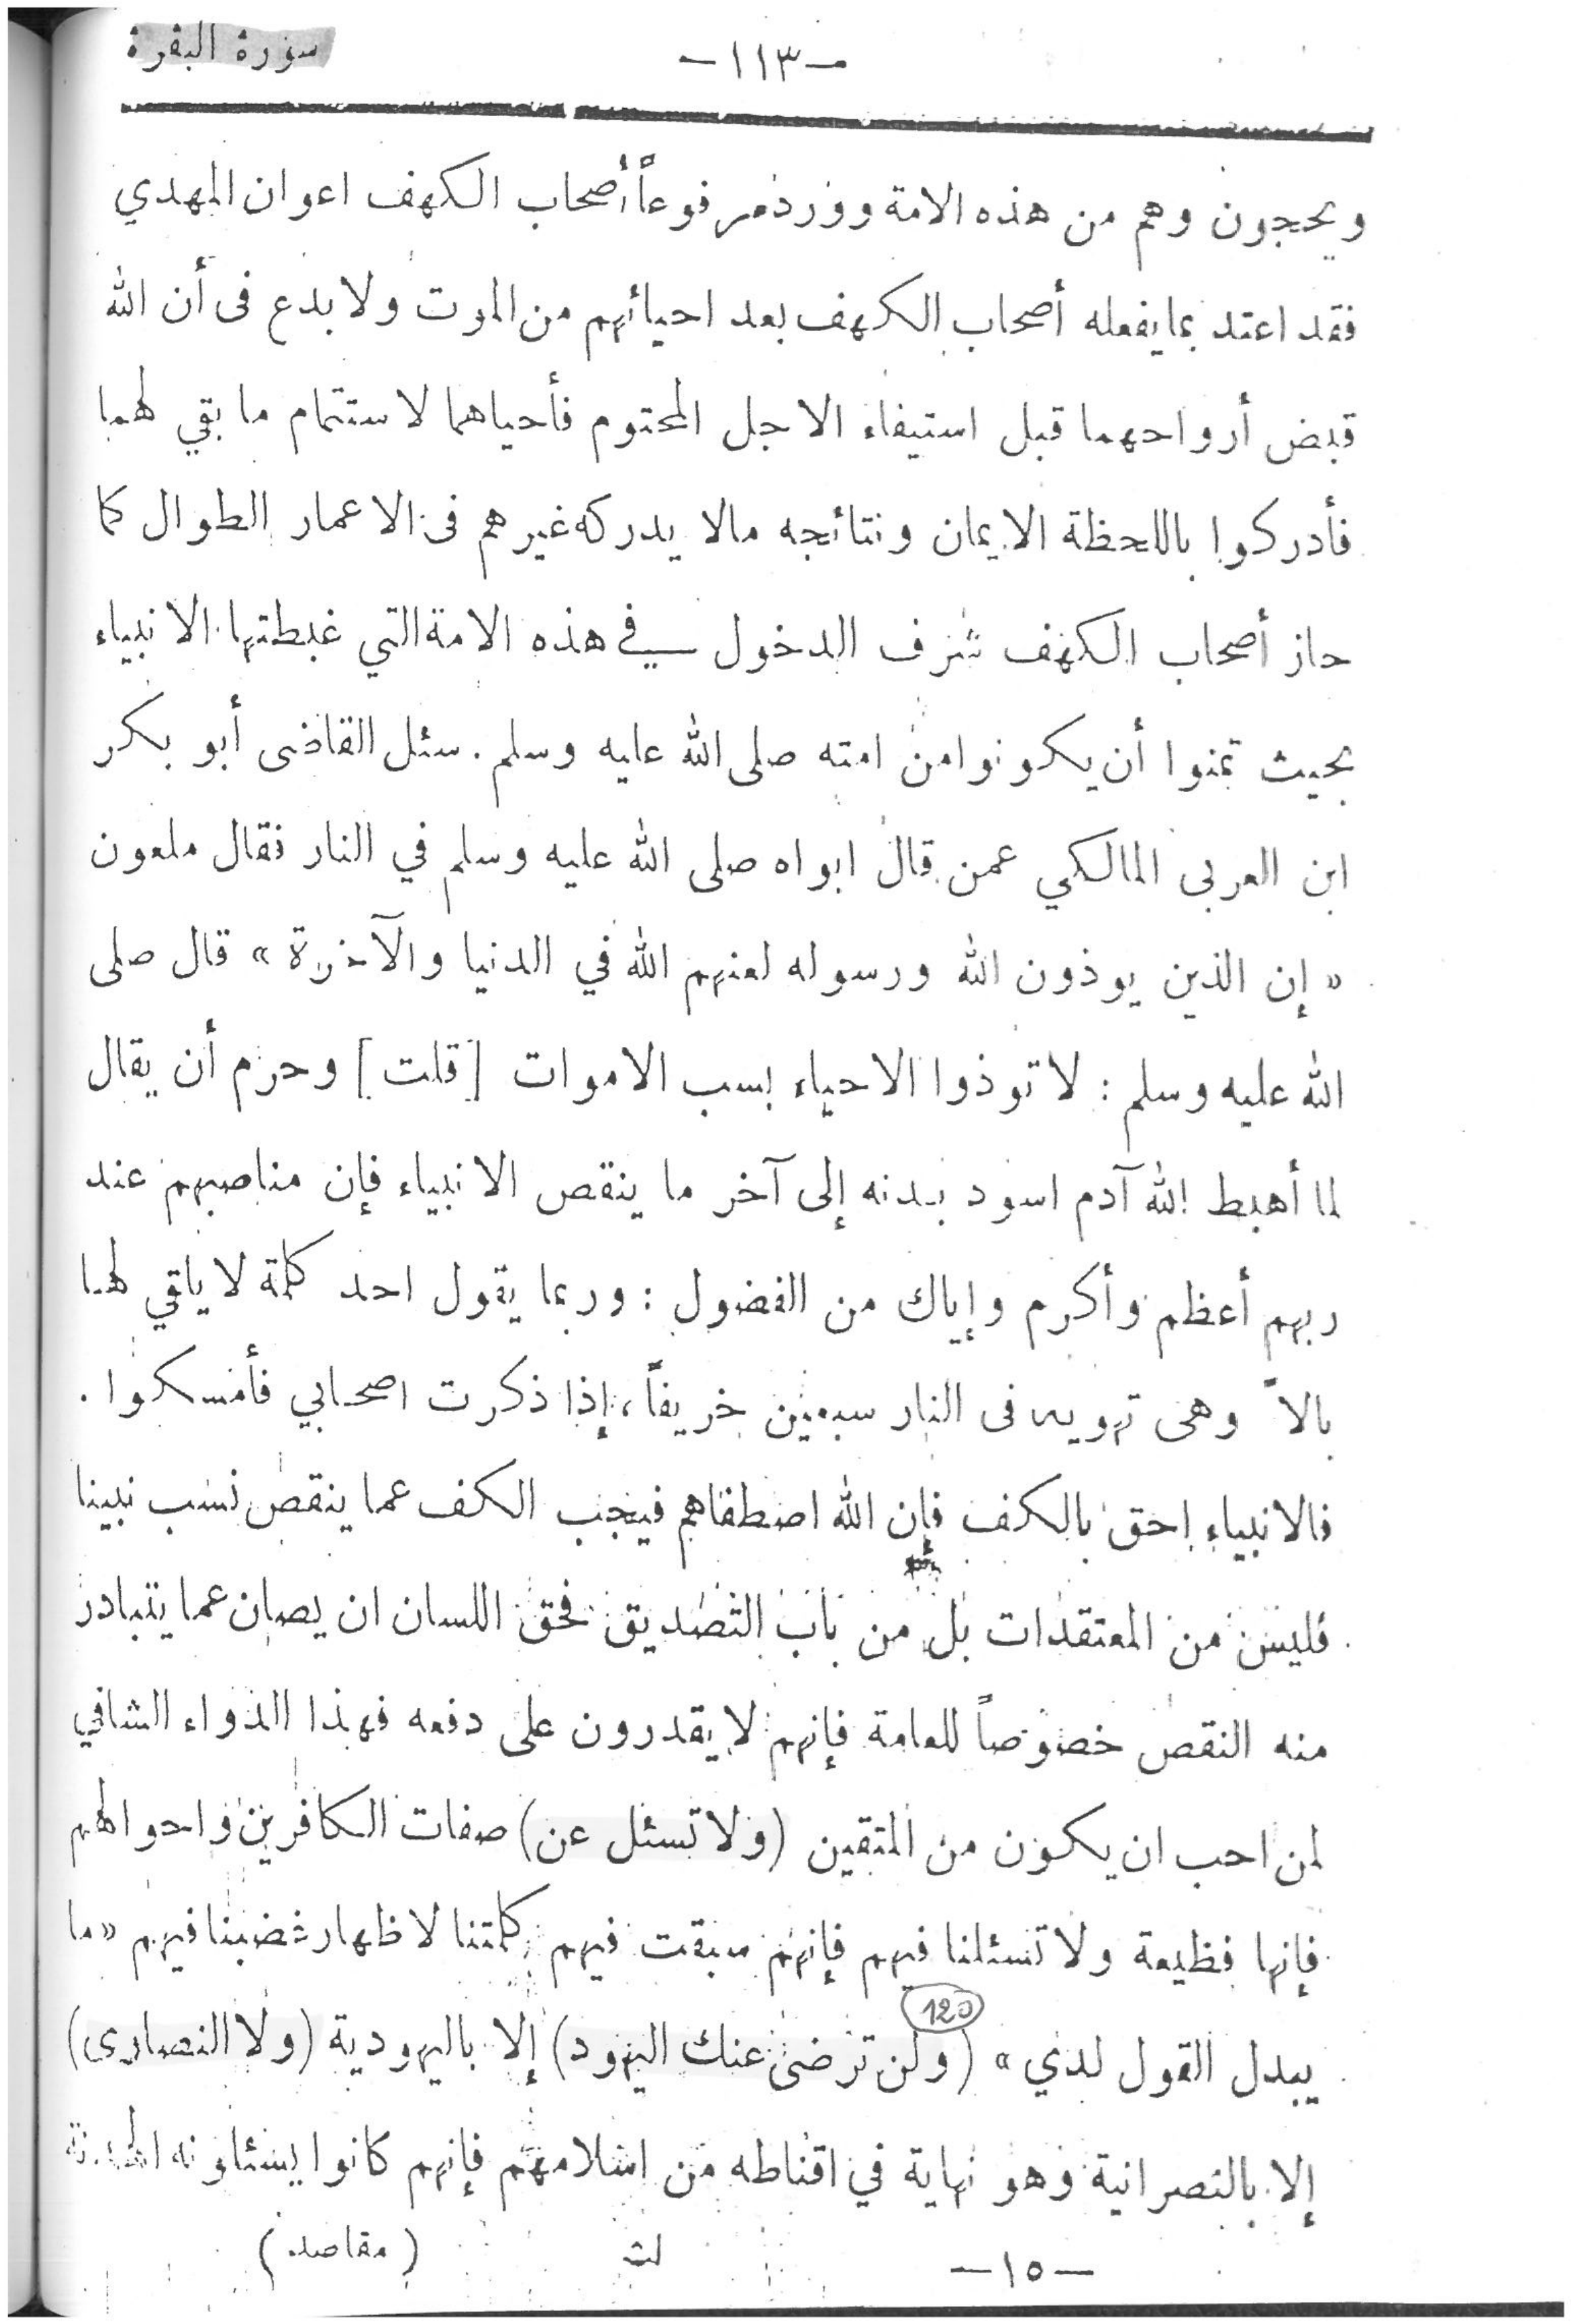 سورة البقرة
—١١٣—
ويحجون وهم من هذه الامة وورد مرفوعاً أصحاب الكهف اعوان المهدي
فقد اعتد بما يفعله أصحاب الكهف بعد احيائهم من الموت ولا بدع فى أن الله
قبض أرواحهما قبل استيفاء الاجل المحتوم فأحياهما لاستتمام ما بقي لهما
فأدركوا باللحظة الايمان ونتائجه مالا يدركه غيرهم فى الاعمار الطوال كما
حاز أصحاب الكهف شرف الدخول في هذه الامة التي غبطتها الانبياء
بحيث تمنوا أن يكونوا من امته صلى الله عليه وسلم. سئل القاضى أبو بكر
ابن العربى المالكي عمن قال ابواه صلى الله عليه وسلم في النار فقال ملعون
« إن الذين يوذون الله ورسوله لعنهم الله في الدنيا والآخرة » قال صلى
الله عليه وسلم : لا توذوا الاحياء بسب الاموات [قلت] وحرم أن يقال
لما أهبط الله آدم اسود بدنه إلى آخر ما ينقص الانبياء فإن مناصبهم عند
ربهم أعظم وأكرم وإياك من الفضول : وربما يقول احد كلمة لا يلقي لها
بالاً وهى تهويه فى النار سبعين خريفاً، إذا ذكرت اصحابي فأمسكوا .
فالانبياء احق بالكف فإن الله اصطفاهم فيجب الكف عما ينقص نسب نبينا
فليس من المعتقدات بل من باب التصديق فحق اللسان ان يصان عما يتبادر
منه النقص خصوصاً للعامة فإنهم لا يقدرون على دفعه فهذا الدواء الشافي
لمن احب ان يكون من المتقين (ولا تسئل عن) صفات الكافرين واحوالهم
فإنها فظيعة ولا تسئلنا فيهم فإنهم سبقت فيهم كلمتنا لاظهار غضبنا فيهم «ما
120
يبدل القول لدي » (ولن ترضى عنك اليهود) إلا باليهودية (ولا النصارى)
إلا بالنصرانية وهو نهاية في اقناطه من اسلامهم فإنهم كانوا يسئلونه الهدنة
—١٥— لث (مقاصد)